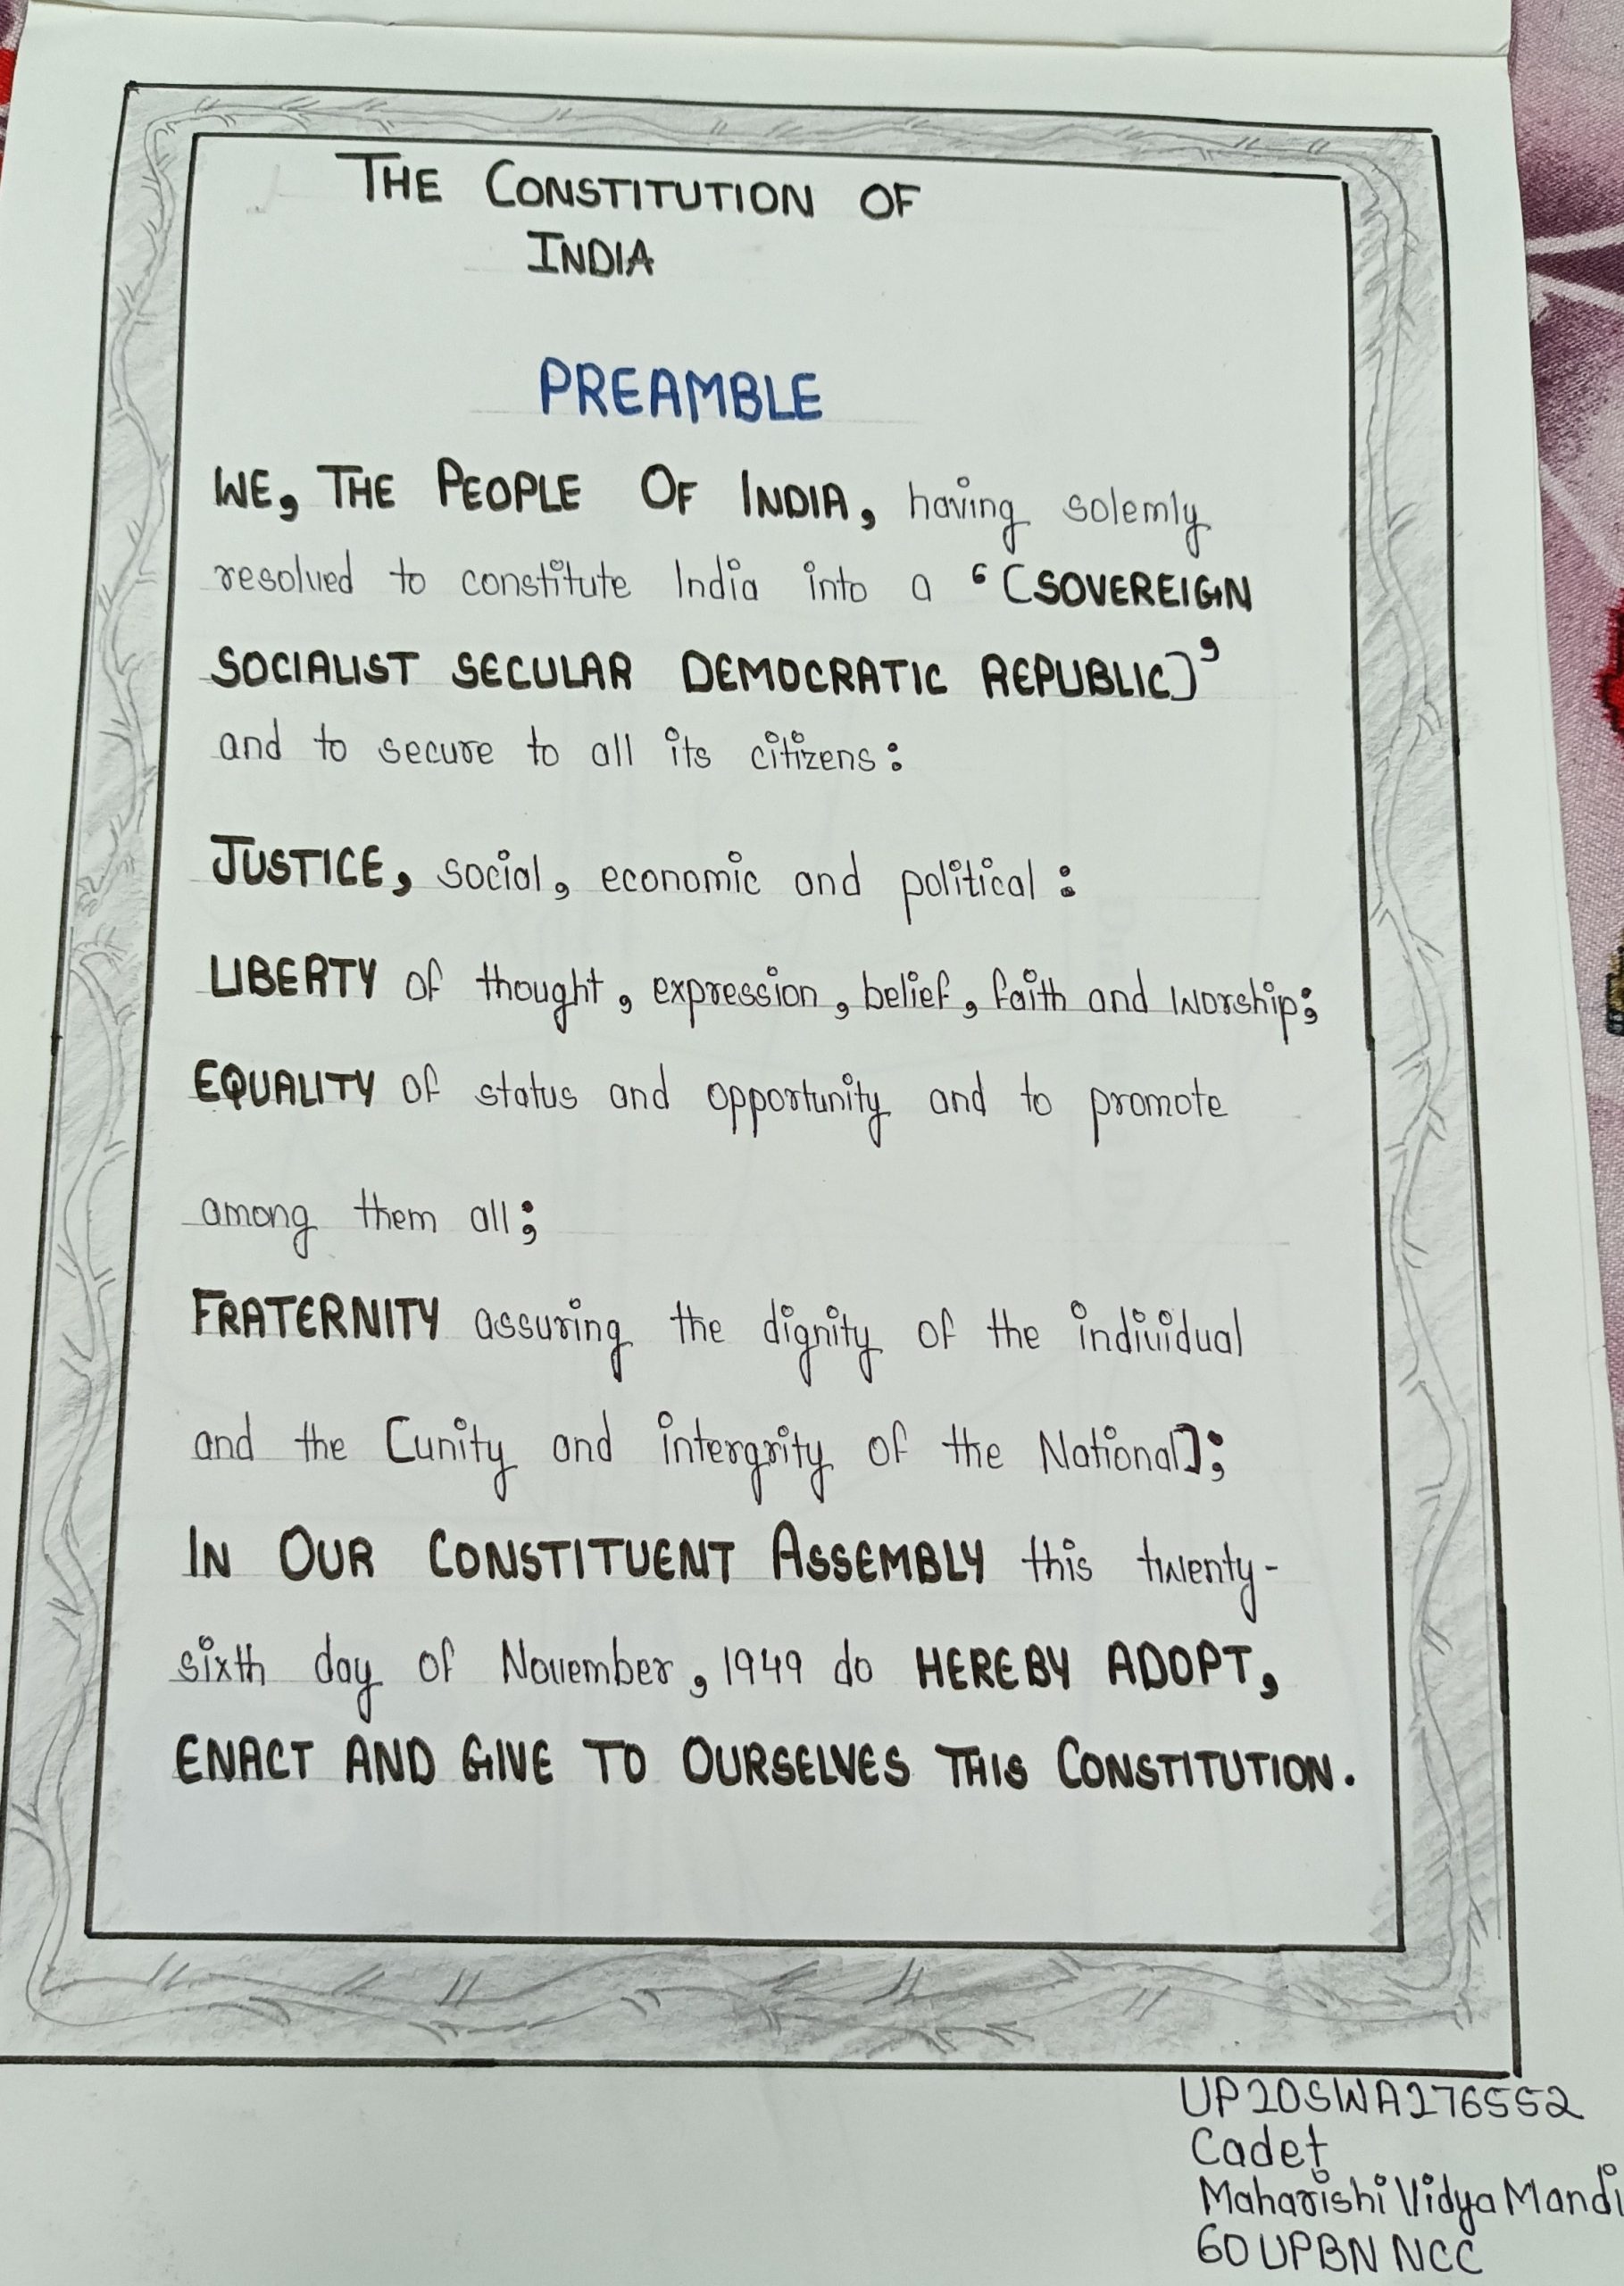 THE CONSTITUTION OF
INDIA
PREAMBLE
WE, THE PEOPLE OF INDIA, having solemly
resolved to constitute India into a ‘(SOVEREIGN
SOCIALIST SECULAR DEMOCRATIC REPUBLIC]’
and to secure to all its citizens:
JUSTICE, social, economic and political :
LIBERTY of thought, expression, belief, faith and worship;
EQUALITY of status and opportunity and to promote
among them all;
FRATERNITY assuring the dignity of the individual
and the [unity and intergrity of the National];
IN OUR CONSTITUENT ASSEMBLY this twenty-
sixth day of November, 1949 do HEREBY ADOPT,
ENACT AND GIVE TO OURSELVES THIS CONSTITUTION.
UP20SWA276552
Cadet
Maharishi Vidya Mandi
60 UPBN NCC